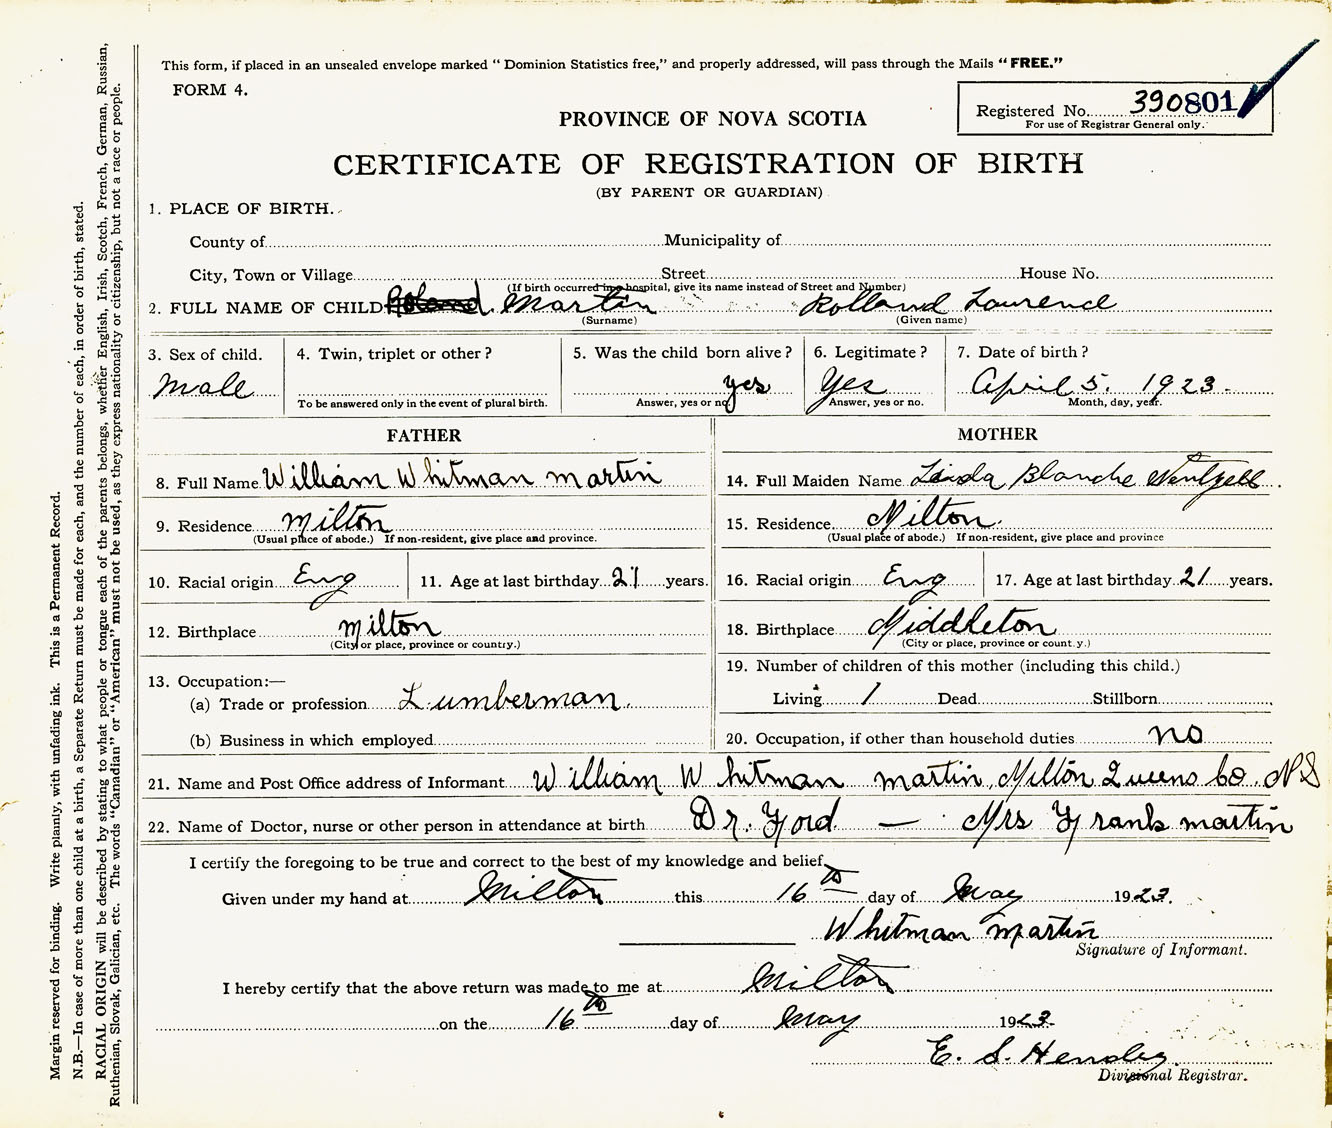 This form, if placed in an unsealed envelope marked " Dominion Statistics free," and properly addressed, will pass through the Mails " FREE."
FORM 4.
Registered No. 390801
For use of Registrar General only.
PROVINCE OF NOVA SCOTIA
CERTIFICATE OF REGISTRATION OF BIRTH
(BY PARENT OR GUARDIAN)
1. PLACE OF BIRTH.
County of Municipality of
City, Town or Village Street House No.
(If birth occurred in a hospital, give its name instead of Street and Number)
2. FULL NAME OF CHILD Martin Rolland Laurence
(Surname) (Given name)
3. Sex of child. 4. Twin, triplet or other ? 5. Was the child born alive ? 6. Legitimate ? 7. Date of birth ?
Male yes Yes April 5. 1923.
To be answered only in the event of plural birth. Answer, yes or no Answer, yes or no. Month, day, year.
FATHER MOTHER
8. Full Name William Whitman Martin 14. Full Maiden Name Linda Blanche Wentzell
9. Residence Milton 15. Residence Milton.
(Usual place of abode.) If non-resident, give place and province. (Usual place of abode.) If non-resident, give place and province
10. Racial origin Eng 11. Age at last birthday 21 years. 16. Racial origin Eng 17. Age at last birthday 21 years.
12. Birthplace Milton 18. Birthplace Middleton
(City or place, province or country.) (City or place, province or country.)
13. Occupation:— 19. Number of children of this mother (including this child.)
(a) Trade or profession Lumberman. Living 1 Dead Stillborn
(b) Business in which employed 20. Occupation, if other than household duties no
21. Name and Post Office address of Informant William Whitman Martin, Milton Queens Co. NS
22. Name of Doctor, nurse or other person in attendance at birth Dr. Ford — Mrs Frank Martin
I certify the foregoing to be true and correct to the best of my knowledge and belief.
Given under my hand at Milton this 16th day of May 1923.
Whitman Martin
Signature of Informant.
I hereby certify that the above return was made to me at Milton
on the 16th day of May 1923.
E. S.
Divisional Registrar.
Margin reserved for binding. Write plainly, with unfading ink. This is a Permanent Record.
N.B.—In case of more than one child at a birth, a Separate Return must be made for each, and the number of each, in order of birth, stated.
RACIAL ORIGIN will be described by stating to what people or tongue each of the parents belongs, whether English, Irish, Scotch, French, German, Russian,
Ruthenian, Slovak, Galician, etc. The words "Canadian" or "American" must not be used, as they express nationality or citizenship, but not a race or people.